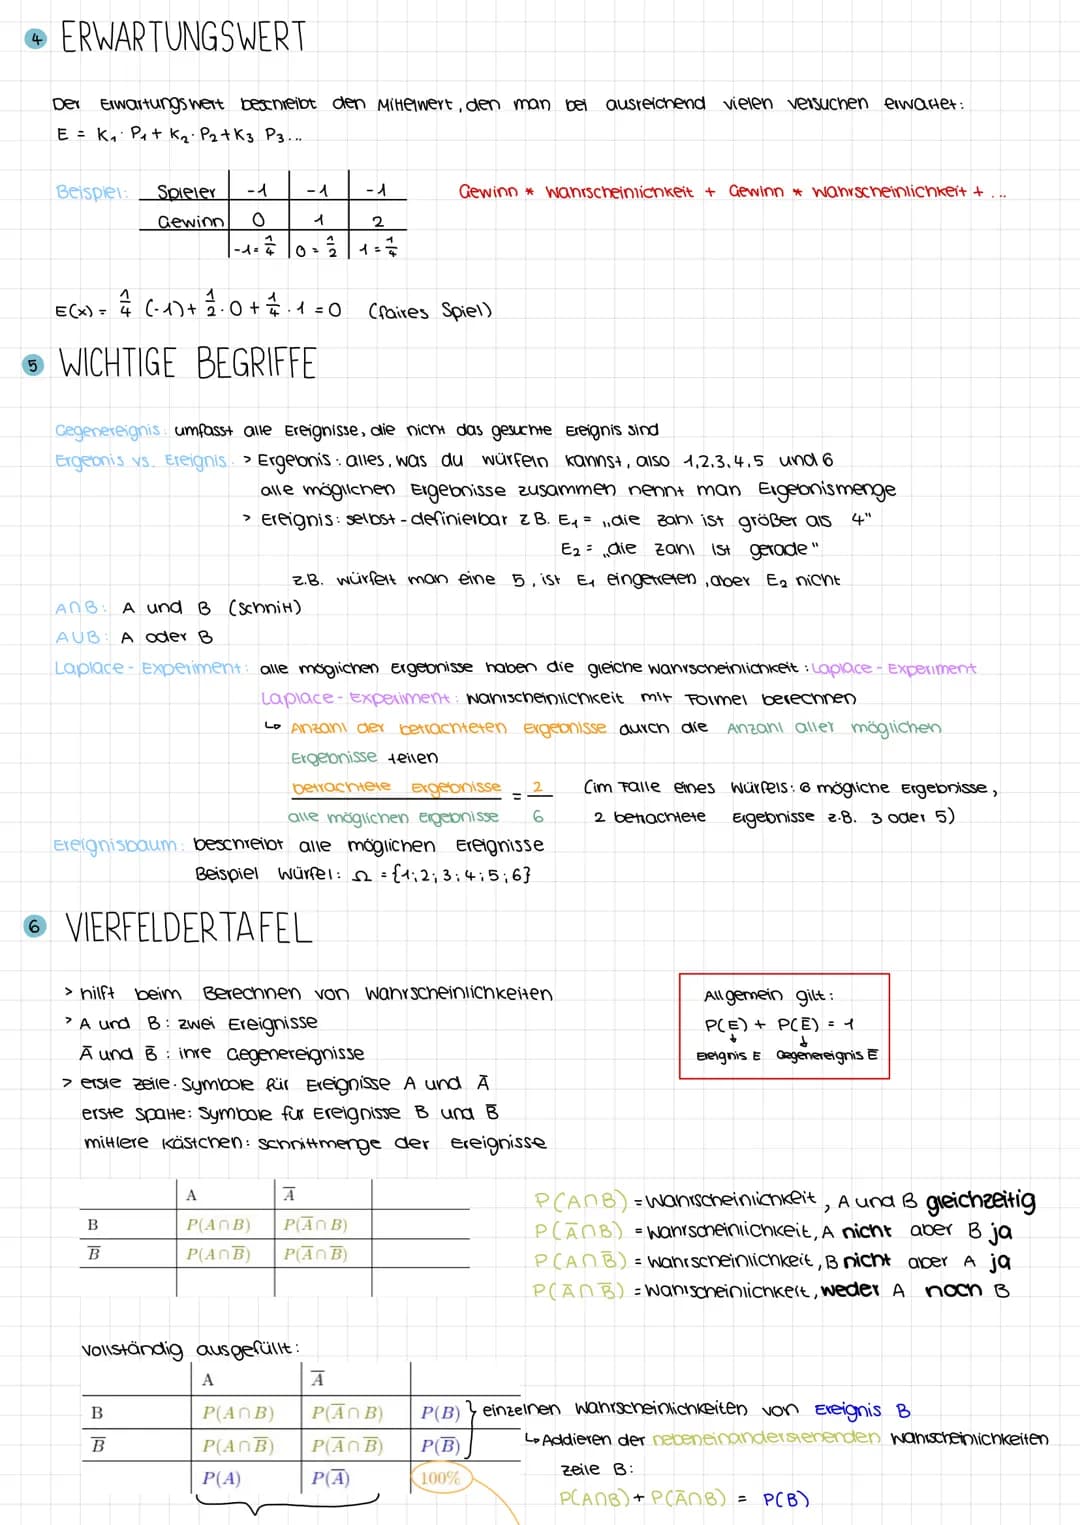 4 ERWARTUNGSWERT
Der Erwartungswert beschreibt den Mittelwert, den man bei ausreichend vielen Versuchen erwartet:
E = K₁ · P₁ + K₂ · P₂ + K₃ P₃ ...
Beispiel: Spieler -1 -1 -1 Gewinn * Wahrscheinlichkeit + Gewinn * Wahrscheinlichkeit + ...
Gewinn 0 1 2
-1 = 1/4 0 = 1/2 1 = 1/4
E(x) = 1/4 (-1) + 1/2 · 0 + 1/4 · 1 = 0 (faires Spiel)
5 WICHTIGE BEGRIFFE
Gegenereignis: umfasst alle Ereignisse, die nicht das gesuchte Ereignis sind
Ergebnis vs. Ereignis: > Ergebnis: alles, was du würfeln kannst, also 1,2,3,4,5 und 6
alle möglichen Ergebnisse zusammen nennt man Ergebnismenge
> Ereignis: selbst-definierbar z.B. E₁ = „die Zahl ist größer als 4"
E₂ = „die Zahl ist gerade"
z.B. würfelt man eine 5, ist E₁ eingetreten, aber E₂ nicht
A∩B: A und B (Schnitt)
A∪B: A oder B
Laplace-Experiment: alle möglichen Ergebnisse haben die gleiche Wahrscheinlichkeit: Laplace-Experiment
Laplace-Experiment: Wahrscheinlichkeit mit Formel berechnen
↳ Anzahl der betrachteten Ergebnisse durch die Anzahl aller möglichen
Ergebnisse teilen
betrachtete Ergebnisse = 2 (im Falle eines Würfels: 6 mögliche Ergebnisse,
alle möglichen Ergebnisse 6 2 betrachtete Ergebnisse z.B. 3 oder 5)
Ereignisbaum: beschreibt alle möglichen Ereignisse
Beispiel Würfel: Ω = {1; 2; 3; 4; 5; 6}
6 VIERFELDERTAFEL
> hilft beim Berechnen von Wahrscheinlichkeiten
> A und B: zwei Ereignisse
A̅ und B̅: ihre Gegenereignisse
> erste Zeile: Symbole für Ereignisse A und A̅
erste Spalte: Symbole für Ereignisse B und B̅
mittlere Kästchen: Schnittmenge der Ereignisse
Allgemein gilt:
P(E) + P(E̅) = 1
↓ ↓
Ereignis E Gegenereignis E̅
A A̅
B P(A∩B) P(A̅∩B)
B̅ P(A∩B̅) P(A̅∩B̅)
P(A∩B) = Wahrscheinlichkeit, A und B gleichzeitig
P(A̅∩B) = Wahrscheinlichkeit, A nicht aber B ja
P(A∩B̅) = Wahrscheinlichkeit, B nicht aber A ja
P(A̅∩B̅) = Wahrscheinlichkeit, weder A noch B
vollständig ausgefüllt:
A A̅
B P(A∩B) P(A̅∩B) P(B) } einzelnen Wahrscheinlichkeiten von Ereignis B
B̅ P(A∩B̅) P(A̅∩B̅) P(B̅) ↳ Addieren der nebeneinanderstehenden Wahrscheinlichkeiten
P(A) P(A̅) 100% Zeile B:
P(A∩B) + P(A̅∩B) = P(B)